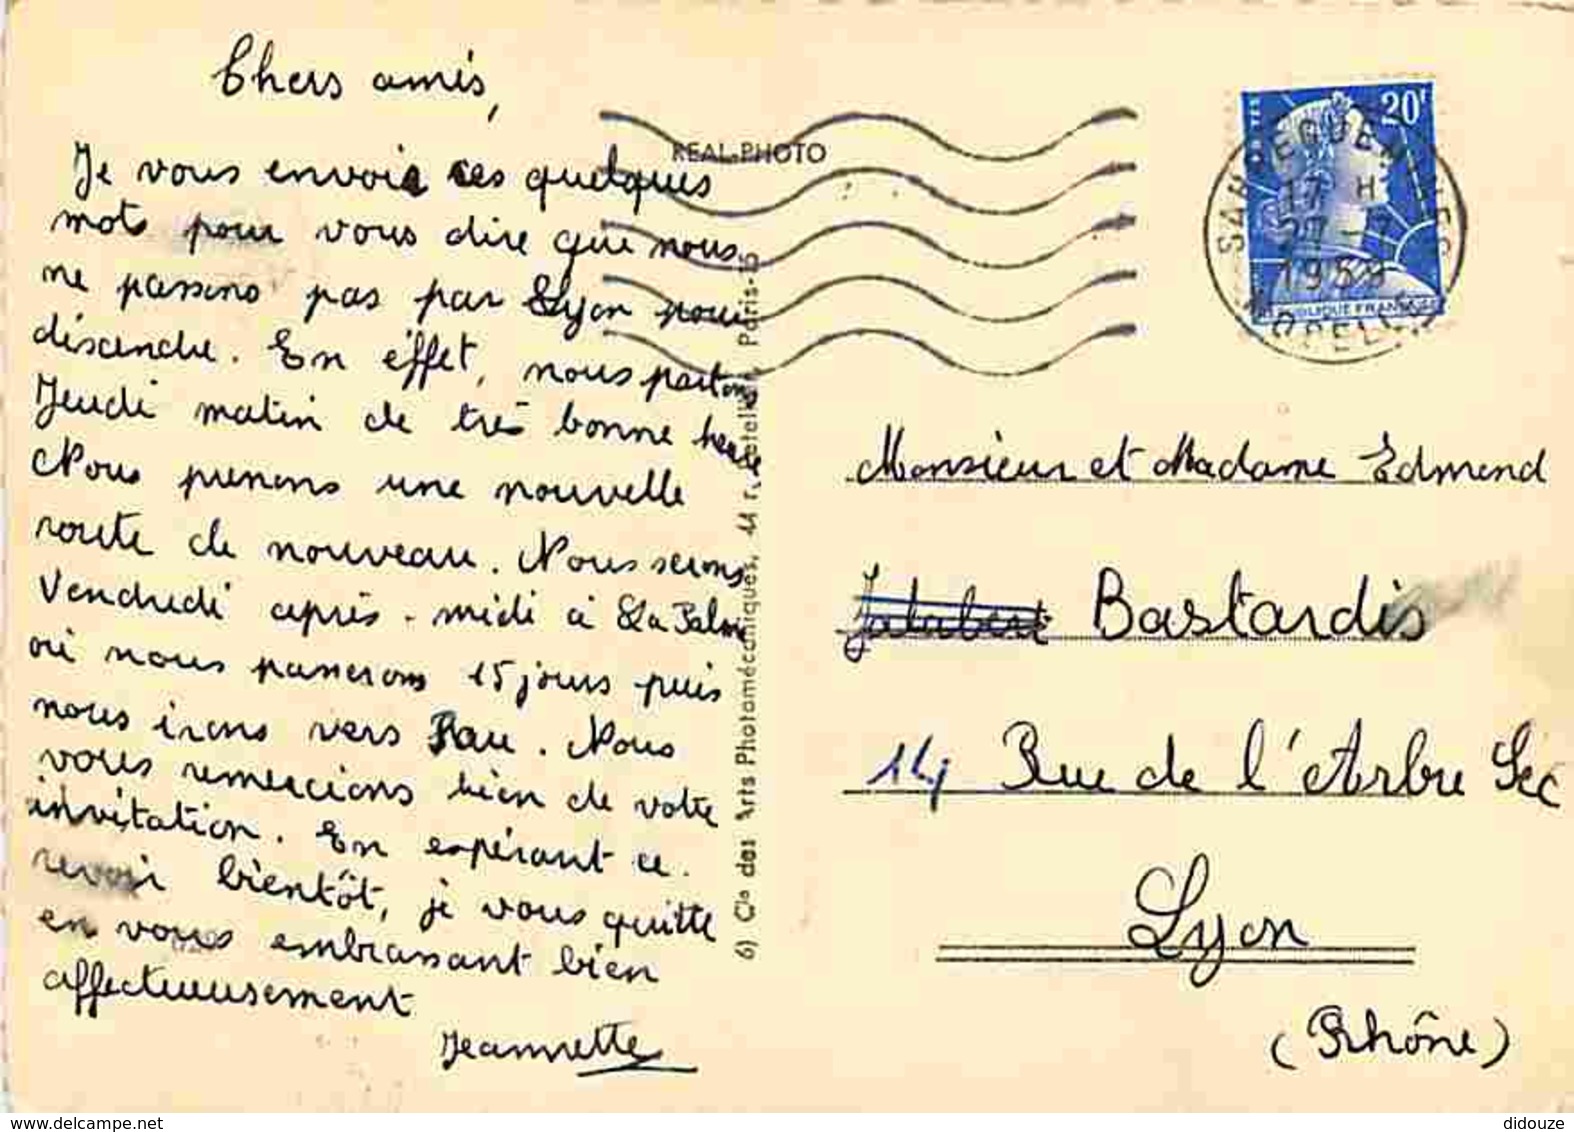 Chers amis,
Je vous envoie ces quelques
mots pour vous dire que nous
ne passons pas par Lyon pour
descendre. En éffet, nous partons
Jeudi matin de très bonne heure
Nous prenons une nouvelle
route de nouveau. Nous serons
Vendredi après-midi à La Palme
où nous passerons 15 jours puis
nous irons vers Pau. Nous
vous remercions bien de votre
invitation. En espérant ce
revoir bientôt, je vous quitte
en vous embrassant bien
affectueusement
Jeannette
REAL-PHOTO
6) Cie des Arts Photomécaniques, 44 r. Paris-15
20F
POSTES
REPUBLIQUE FRANÇAISE
SARREGUEMINES
17 H
27-7
1959
MOSELLE
Monsieur et Madame Edmond
Jalabert Bastardis
14 Rue de l'Arbre Sec
Lyon
(Rhône)
didouze